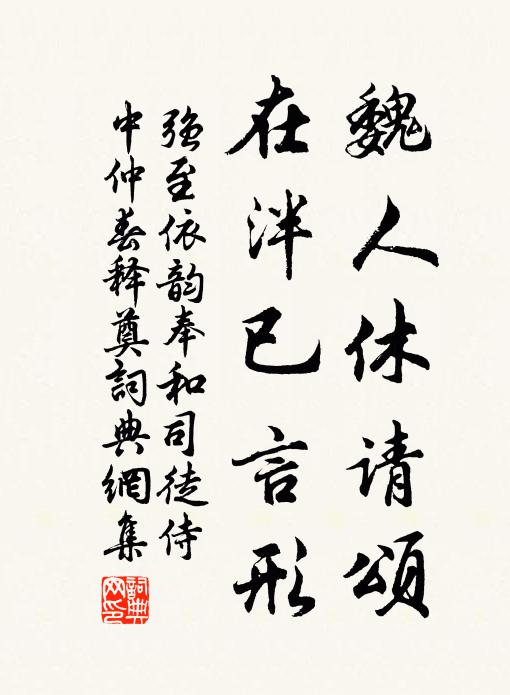 魏人休请颂
在泮已言形
强至依韵奉和司徒侍
中仲春释奠詞典網集
詞典网印